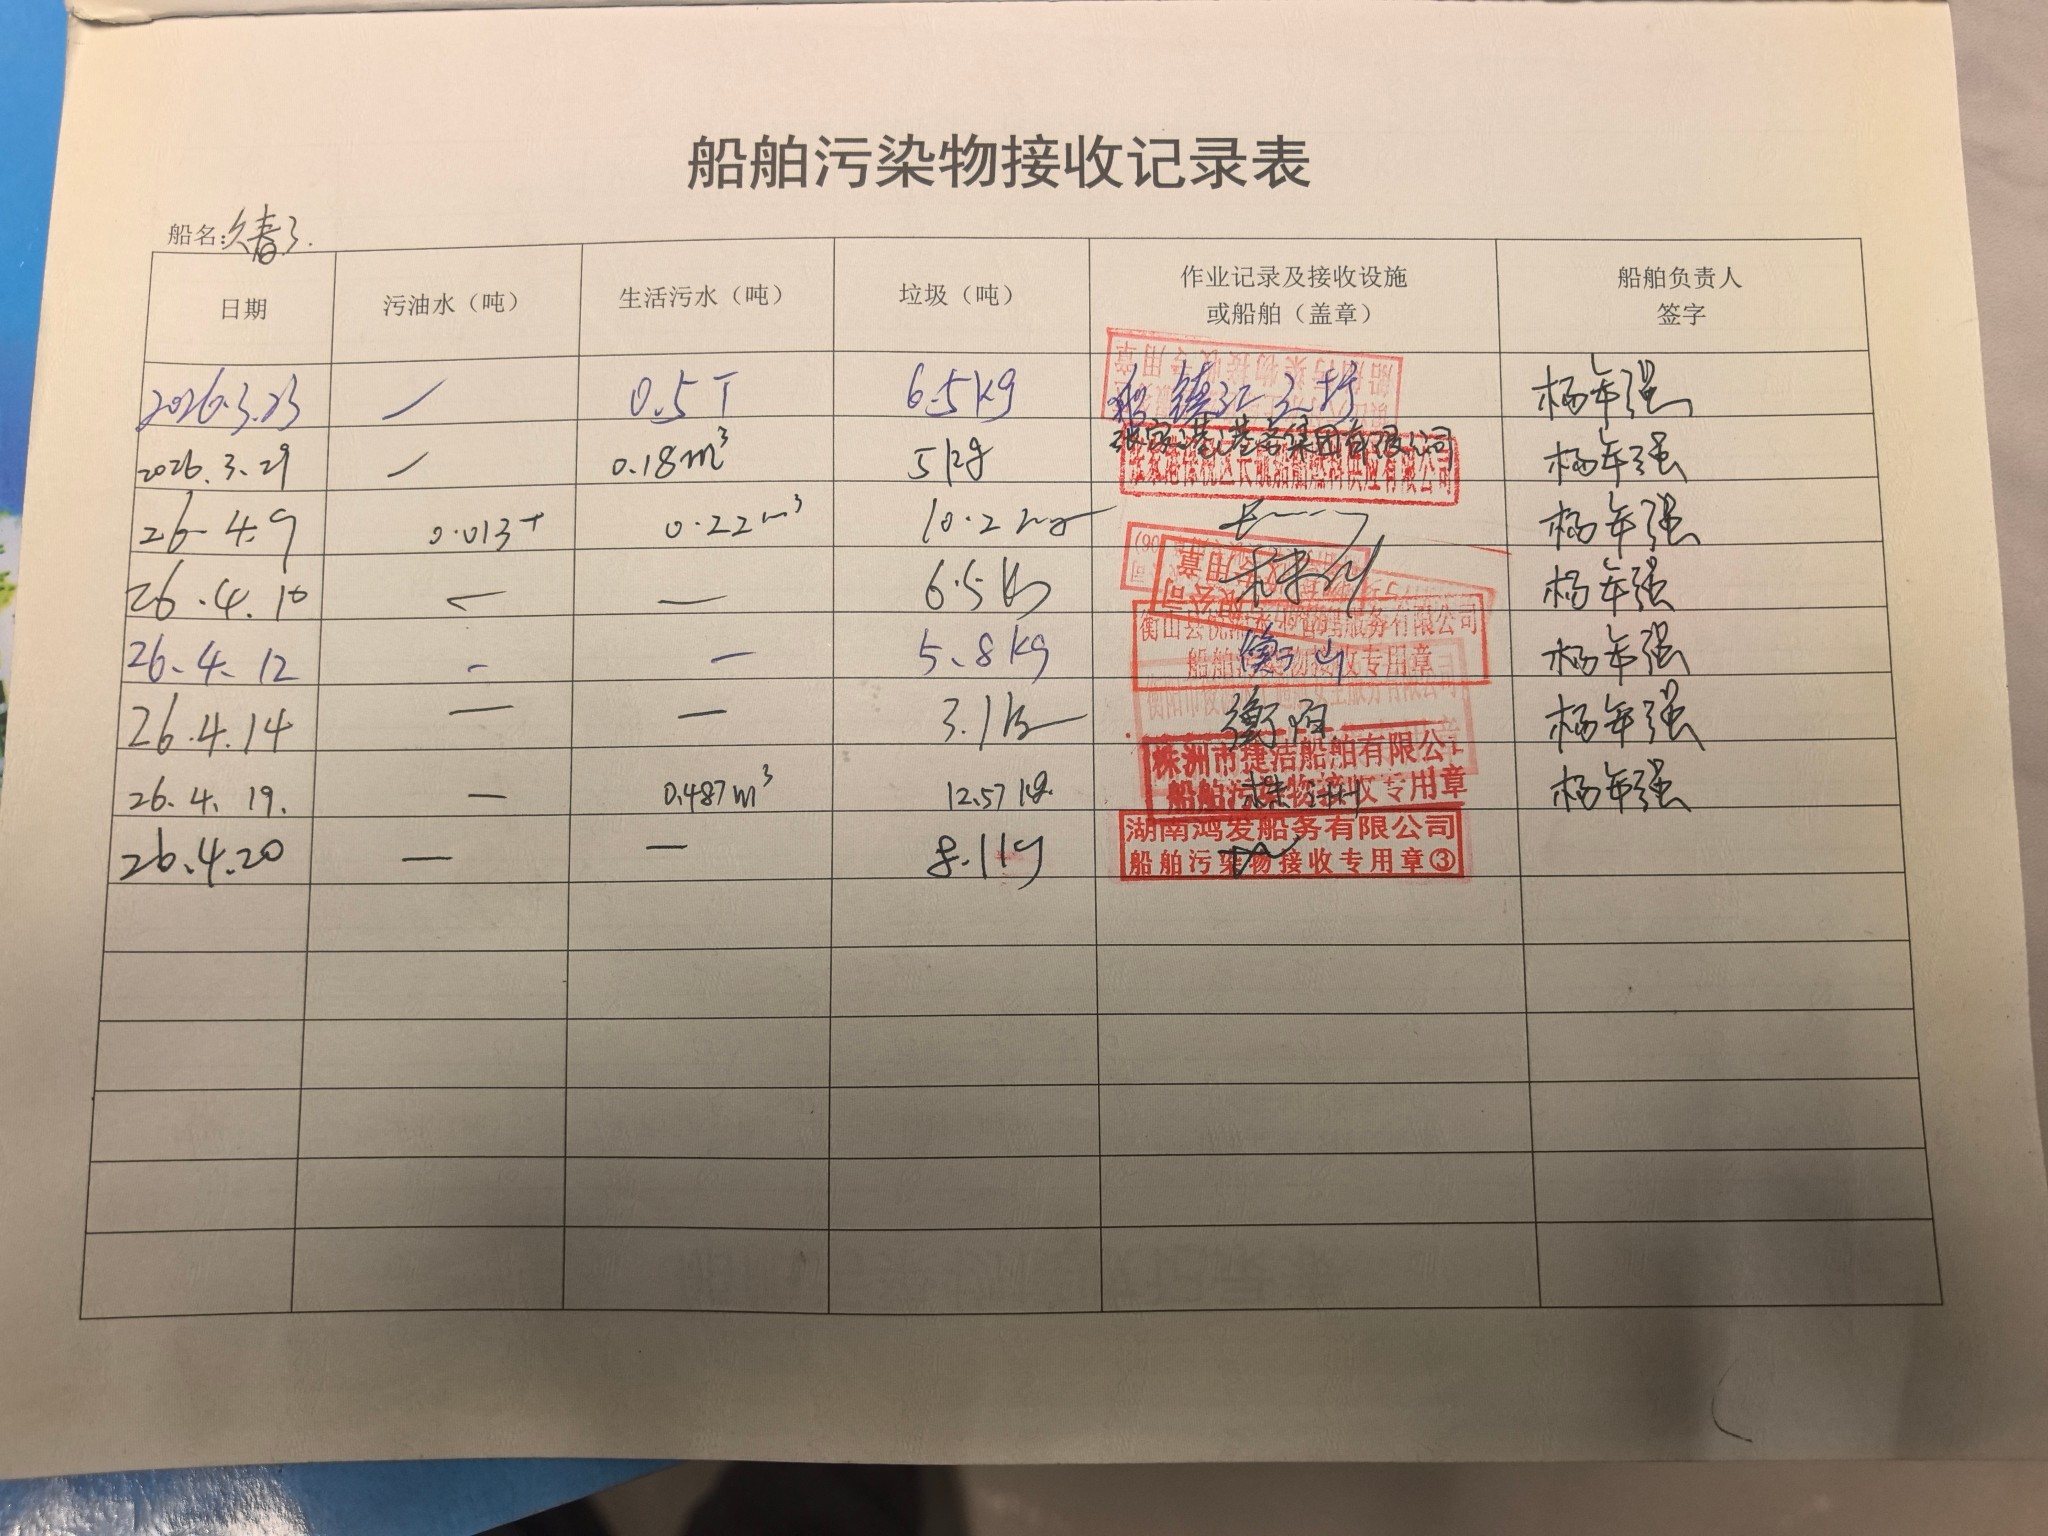 船舶污染物接收记录表
船名:久春3.
日期 污油水（吨） 生活污水（吨） 垃圾（吨） 作业记录及接收设施或船舶（盖章） 船舶负责人签字
2026.3.23 / 0.5T 6.5kg 杨年强
2026.3.29 / 0.18m³ 5kg 杨年强
26-4.9 0.013T 0.22m³ 10.2kg 杨年强
26.4.10 — — 6.5kg 杨年强
26.4.12 - — 5.8kg 衡山 杨年强
船舶污染物接收专用章
26.4.14 — — 3.1kg 衡阳 杨年强
26.4.19. — 0.487m³ 12.57kg 株洲 杨年强
株洲市捷洁船舶有限公
船舶污染物接收专用章
26.4.20 — — 8.1kg
湖南鸿发船务有限公司
船舶污染物接收专用章③